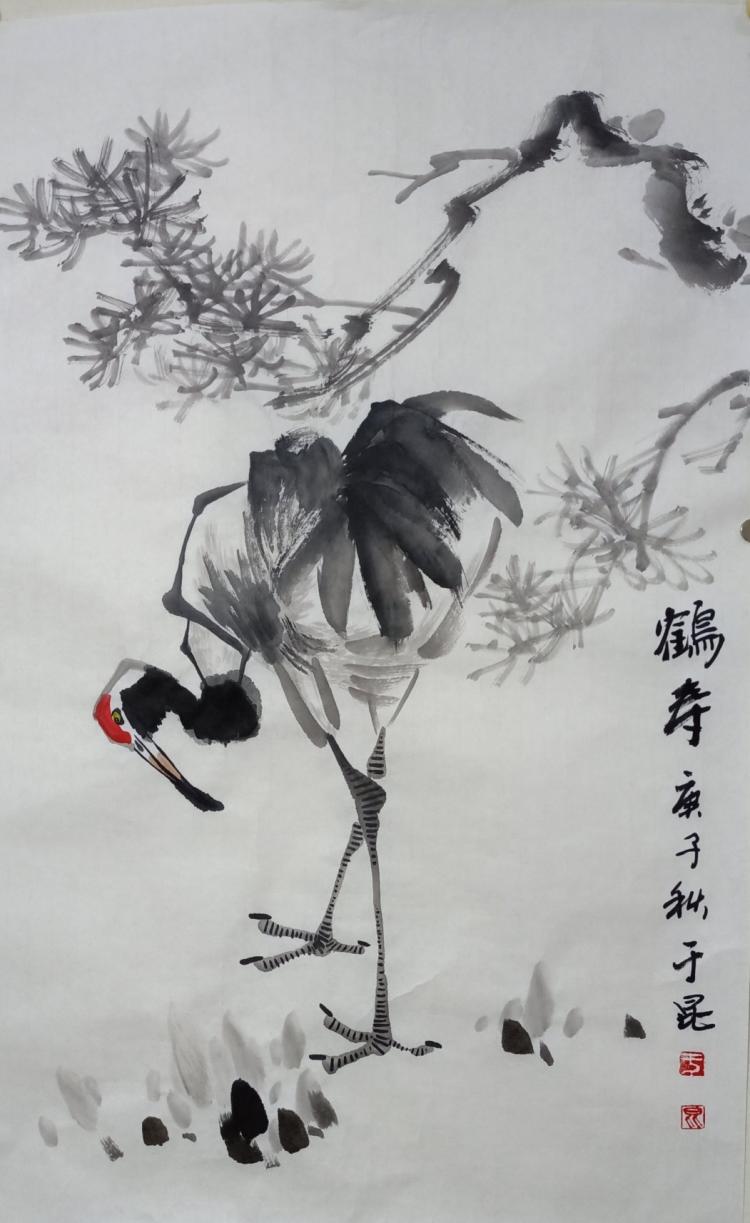 鶴寿庚子秋于昆